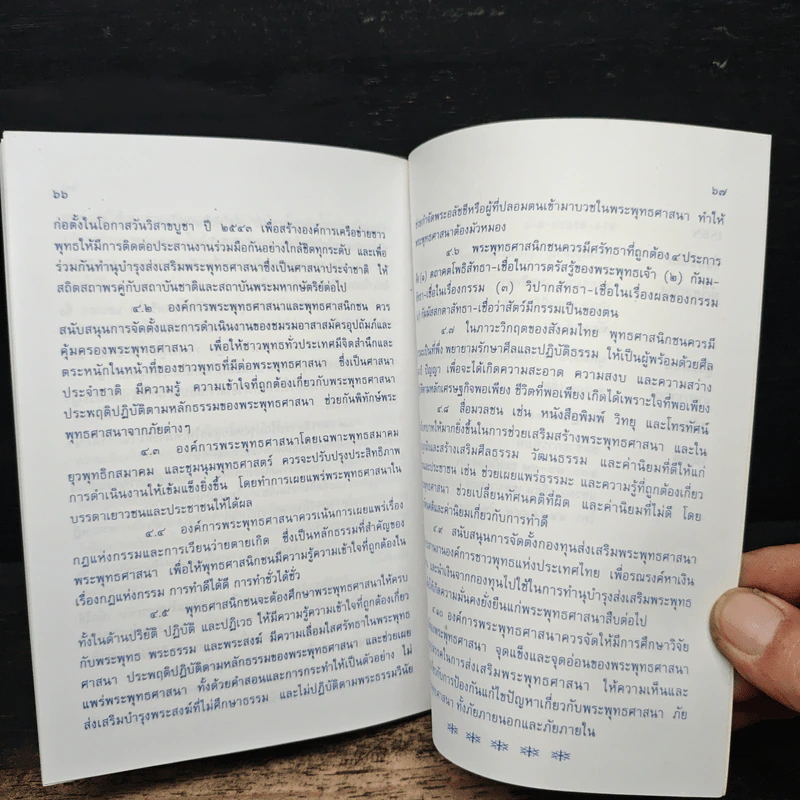 ๖๖
ก่อตั้งในโอกาสวันวิสาขบูชา ปี ๒๕๔๓ เพื่อสร้างองค์การเครือข่ายชาว
พุทธให้มีการติดต่อประสานงานร่วมมือกันอย่างใกล้ชิดทุกระดับ และเพื่อ
ร่วมกันทำนุบำรุงส่งเสริมพระพุทธศาสนาซึ่งเป็นศาสนาประจำชาติ ให้
สถิตสถาพรคู่กับสถาบันชาติและสถาบันพระมหากษัตริย์ต่อไป
๔.๒ องค์การพระพุทธศาสนาและพุทธศาสนิกชน ควร
สนับสนุนการจัดตั้งและการดำเนินงานของชมรมอาสาสมัครอุปถัมภ์และ
คุ้มครองพระพุทธศาสนา เพื่อให้ชาวพุทธทั่วประเทศมีจิตสำนึกและ
ตระหนักในหน้าที่ของชาวพุทธที่มีต่อพระพุทธศาสนา ซึ่งเป็นศาสนา
ประจำชาติ มีความรู้ ความเข้าใจที่ถูกต้องเกี่ยวกับพระพุทธศาสนา
ประพฤติปฏิบัติตามหลักธรรมของพระพุทธศาสนา ช่วยกันพิทักษ์พระ
พุทธศาสนาจากภัยต่างๆ
๔.๓ องค์การพระพุทธศาสนาโดยเฉพาะพุทธสมาคม
ยุวพุทธิกสมาคม และชุมนุมพุทธศาสตร์ ควรจะปรับปรุงประสิทธิภาพ
การดำเนินงานให้เข้มแข็งยิ่งขึ้น โดยทำการเผยแพร่พระพุทธศาสนาใน
บรรดาเยาวชนและประชาชนให้ได้ผล
๔.๔ องค์การพระพุทธศาสนาควรเน้นการเผยแพร่เรื่อง
กฎแห่งกรรมและการเวียนว่ายตายเกิด ซึ่งเป็นหลักธรรมที่สำคัญของ
พระพุทธศาสนา เพื่อให้พุทธศาสนิกชนมีความรู้ความเข้าใจที่ถูกต้องใน
เรื่องกฎแห่งกรรม การทำดีได้ดี การทำชั่วได้ชั่ว
๔.๕ พุทธศาสนิกชนจะต้องศึกษาพระพุทธศาสนาให้ครบ
ทั้งในด้านปริยัติ ปฏิบัติ และปฏิเวธ ให้มีความรู้ความเข้าใจที่ถูกต้องเกี่ยว
กับพระพุทธ พระธรรม และพระสงฆ์ มีความเลื่อมใสศรัทธาในพระพุทธ
ศาสนา ประพฤติปฏิบัติตามหลักธรรมของพระพุทธศาสนา และช่วยเผย
แพร่พระพุทธศาสนา ทั้งด้วยคำสอนและการกระทำให้เป็นตัวอย่าง ไม่
ส่งเสริมบำรุงพระสงฆ์ที่ไม่ศึกษาธรรม และไม่ปฏิบัติตามพระธรรมวินัย
๖๗
กำจัดพระอลัชชีหรือผู้ที่ปลอมตนเข้ามาบวชในพระพุทธศาสนา ทำให้
พระพุทธศาสนาต้องมัวหมอง
๔.๖ พระพุทธศาสนิกชนควรมีศรัทธาที่ถูกต้อง ๔ ประการ
(๑) ตถาคตโพธิสัทธา-เชื่อในการตรัสรู้ของพระพุทธเจ้า (๒) กัมม-
สัทธา-เชื่อในเรื่องกรรม (๓) วิปากสัทธา-เชื่อในเรื่องผลของกรรม
กัมมัสสกตาสัทธา-เชื่อว่าสัตว์มีกรรมเป็นของตน
๔.๗ ในภาวะวิกฤตของสังคมไทย พุทธศาสนิกชนควรมี
ที่พึ่ง พยายามรักษาศีลและปฏิบัติธรรม ให้เป็นผู้พร้อมด้วยศีล
ปัญญา เพื่อจะได้เกิดความสะอาด ความสงบ และความสว่าง
ตามหลักเศรษฐกิจพอเพียง ชีวิตที่พอเพียง เกิดได้เพราะใจที่พอเพียง
๔.๘ สื่อมวลชน เช่น หนังสือพิมพ์ วิทยุ และโทรทัศน์
ให้มากยิ่งขึ้นในการช่วยเสริมสร้างพระพุทธศาสนา และใน
และสร้างเสริมศีลธรรม วัฒนธรรม และค่านิยมที่ดีให้แก่
และประชาชน เช่น ช่วยเผยแพร่ธรรมะ และความรู้ที่ถูกต้องเกี่ยว
พุทธศาสนา ช่วยเปลี่ยนทัศนคติที่ผิด และค่านิยมที่ไม่ดี โดย
และค่านิยมเกี่ยวกับการทำดี
๔.๙ สนับสนุนการจัดตั้งกองทุนส่งเสริมพระพุทธศาสนา
องค์การชาวพุทธแห่งประเทศไทย เพื่อรณรงค์หาเงิน
และนำเงินจากกองทุนไปใช้ในการทำนุบำรุงส่งเสริมพระพุทธ
ให้เกิดความมั่นคงยั่งยืนแก่พระพุทธศาสนาสืบต่อไป
๔.๑๐ องค์การพระพุทธศาสนาควรจัดให้มีการศึกษาวิจัย
พระพุทธศาสนา จุดแข็งและจุดอ่อนของพระพุทธศาสนา
ในการส่งเสริมพระพุทธศาสนา ให้ความเห็นและ
กับการป้องกันแก้ไขปัญหาเกี่ยวกับพระพุทธศาสนา ภัย
ศาสนา ทั้งภัยภายนอกและภัยภายใน